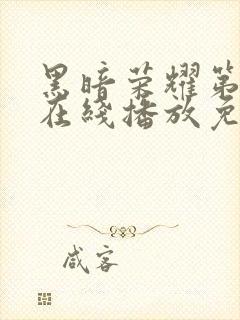 黑暗荣耀第
在线播放免
咸客